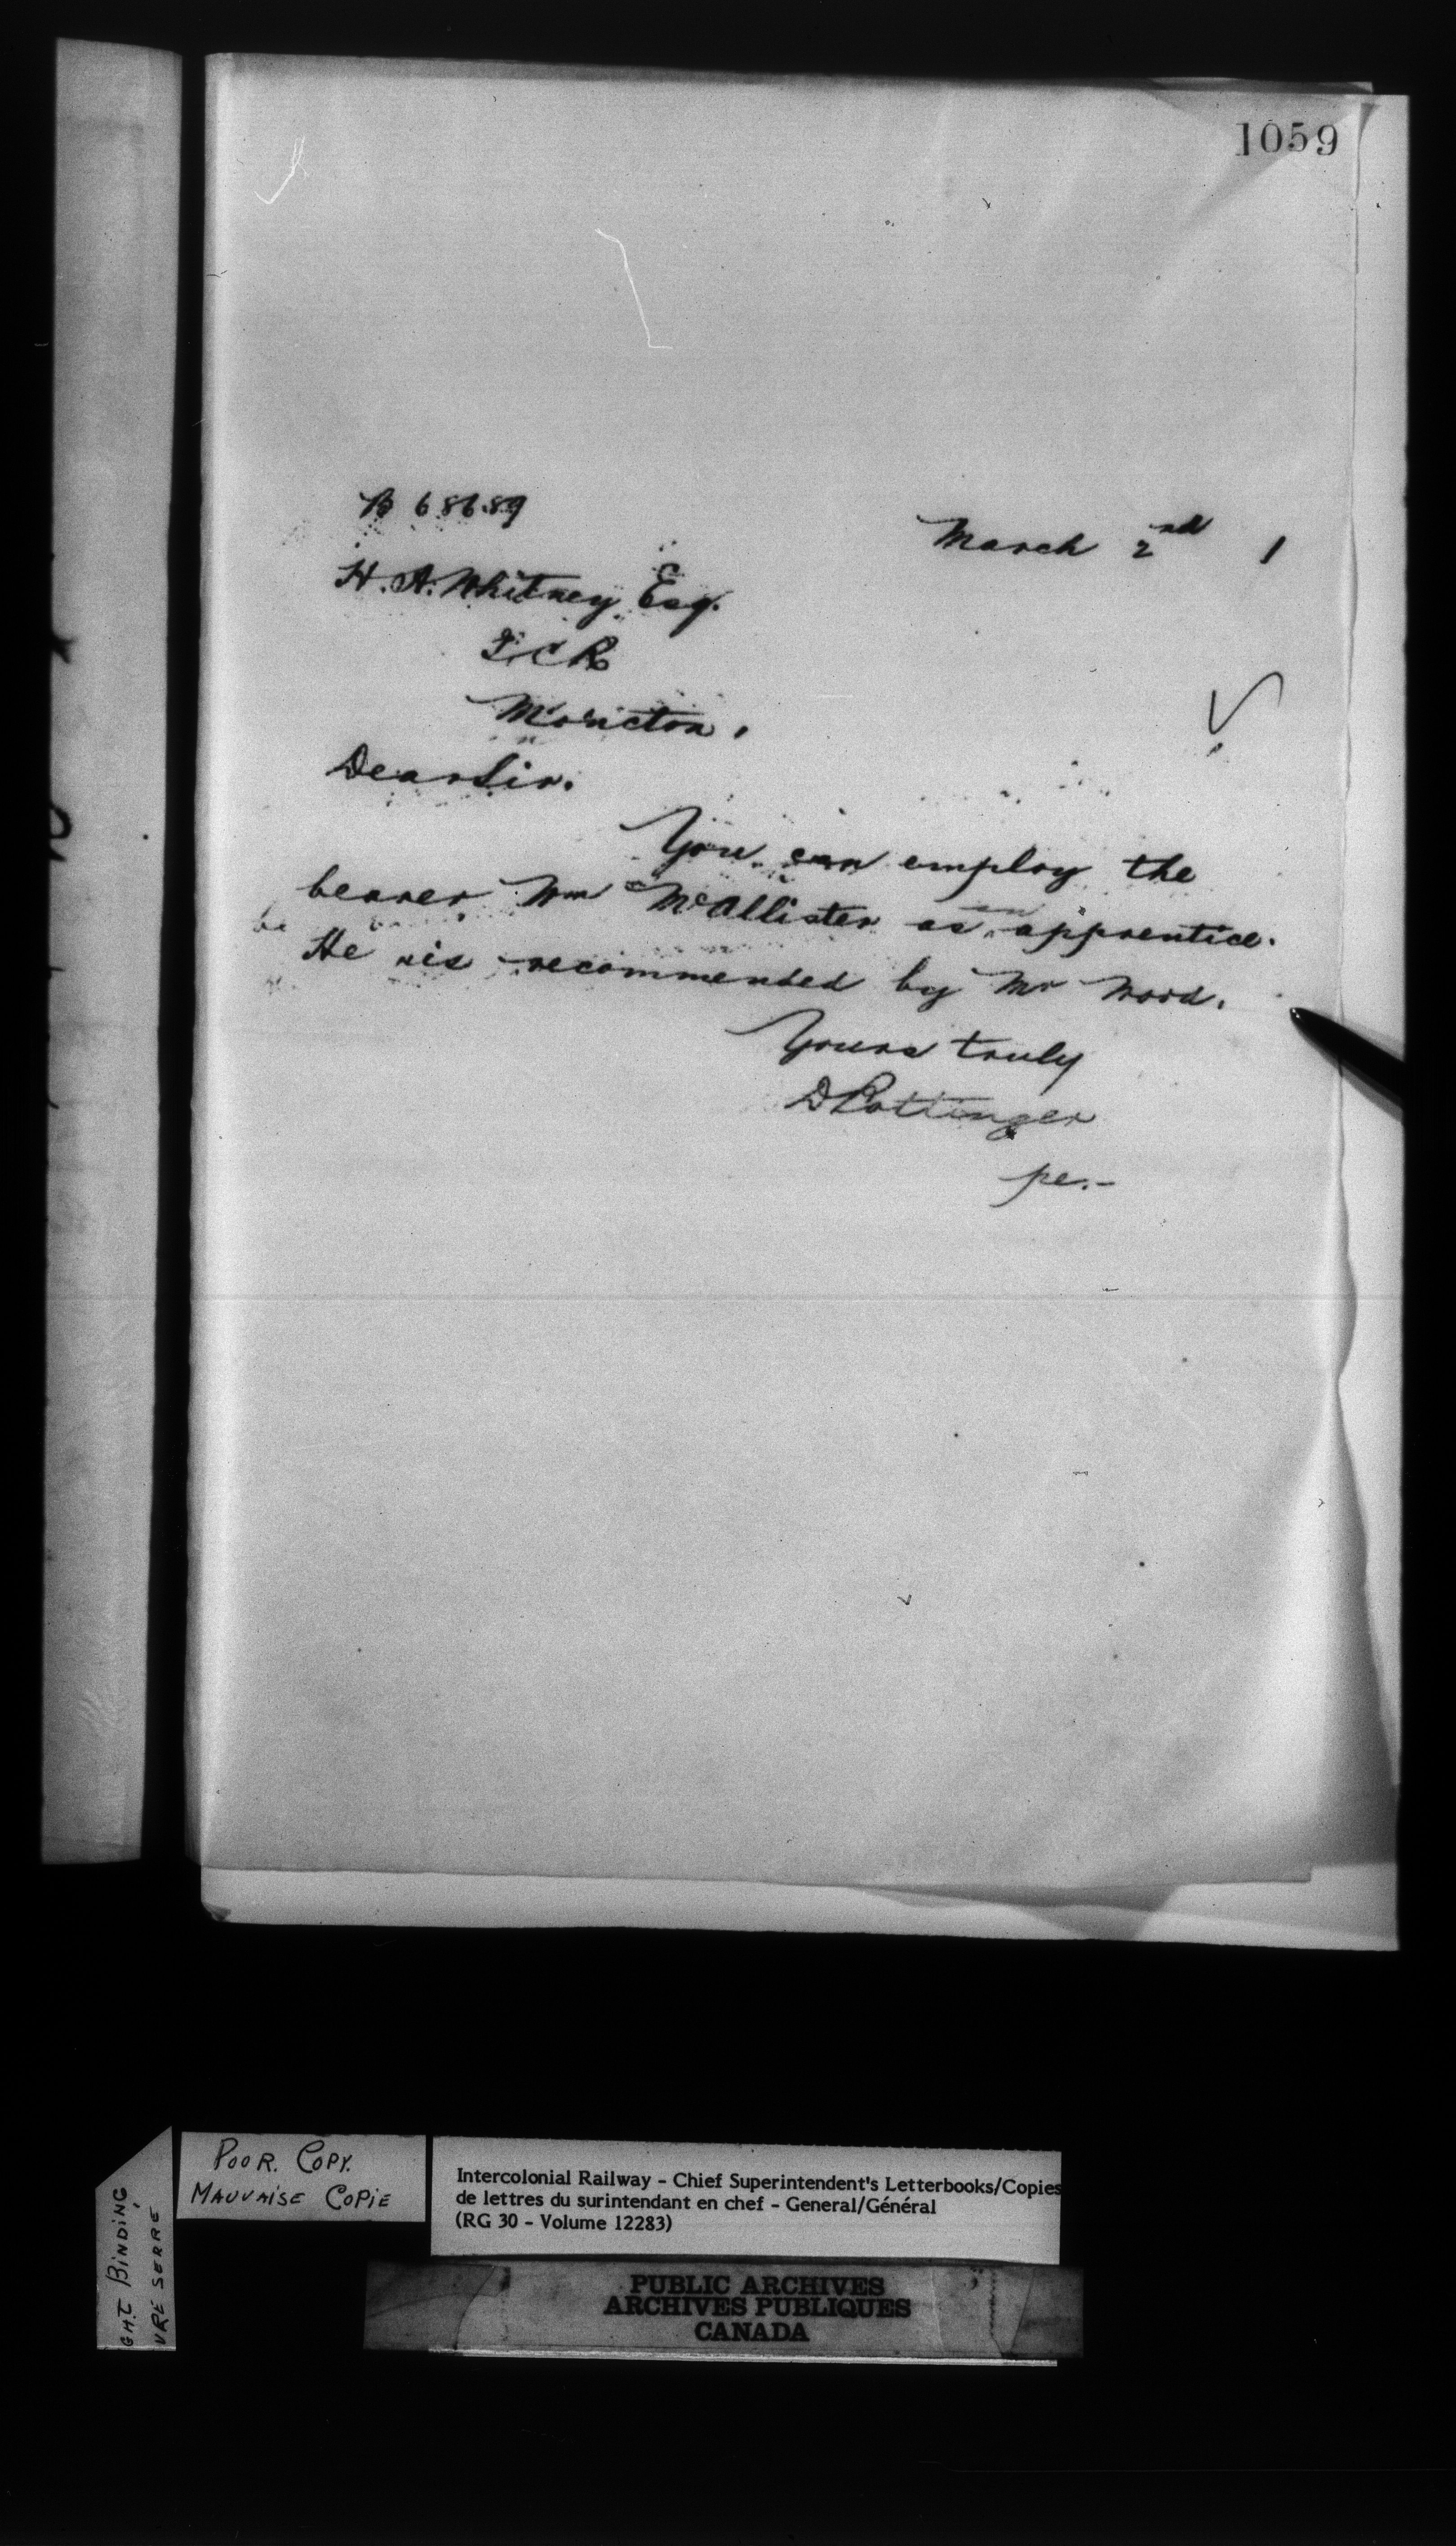 1059
B 68689
March 2nd 1
H. A. Whitney Esq.
I.C.R
Moncton,
Dear Sir.
You can employ the
bearer Wm McAllister as an apprentice.
He is recommended by Mr Wood.
Yours truly
D Pottinger
pe.-
POOR. COPY.
MAUVAISE COPIE
GHT BINDING
VRE SERRÉ
Intercolonial Railway - Chief Superintendent's Letterbooks/Copies
de lettres du surintendant en chef - General/Général
(RG 30 - Volume 12283)
PUBLIC ARCHIVES
ARCHIVES PUBLIQUES
CANADA